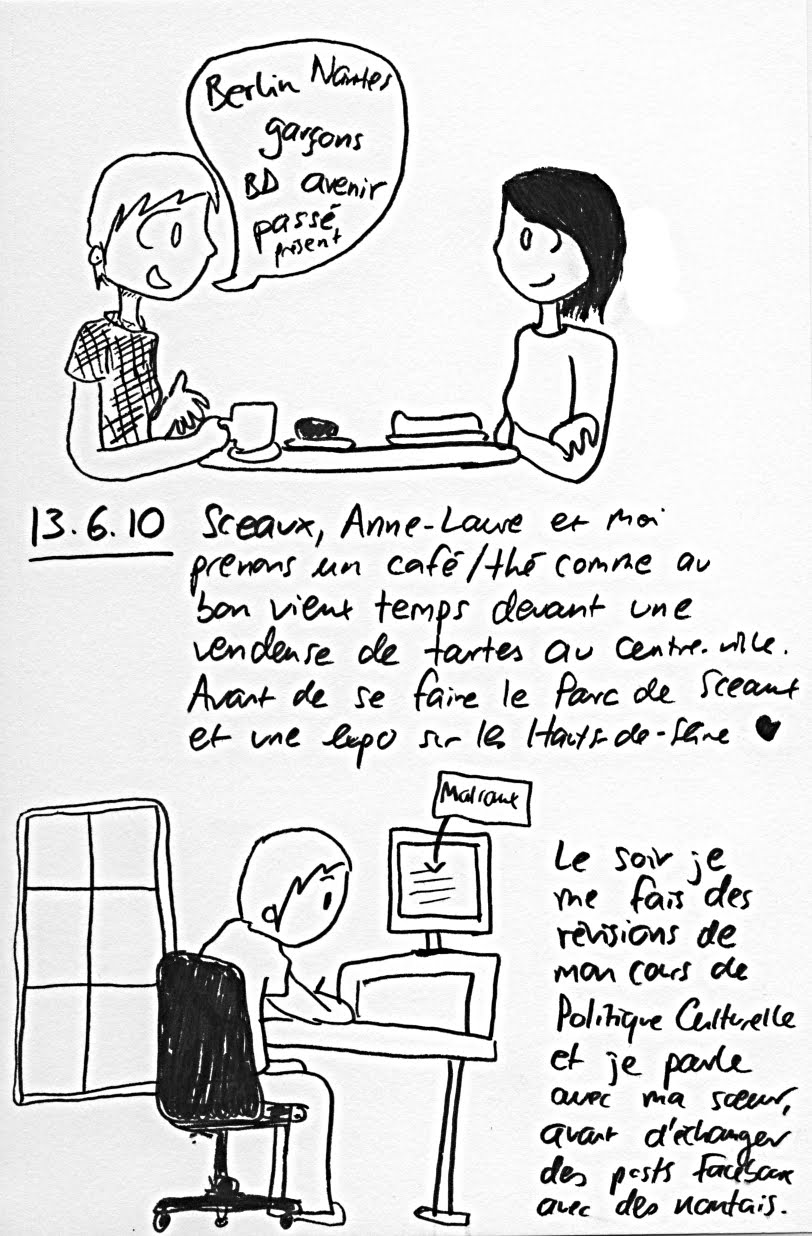 Berlin Nantes
garçons
BD avenir
passé
présent
13.6.10 Sceaux, Anne-Laure et moi
prenons un café/thé comme au
bon vieux temps devant une
vendeuse de tartes au centre-ville.
Avant de se faire le Parc de Sceaux
et une expo sur les Hauts-de-Seine ♥
Malraux
Le soir je
me fais des
révisions de
mon cours de
Politique Culturelle
et je parle
avec ma sœur,
avant d'échanger
des posts facebook
avec des nantais.